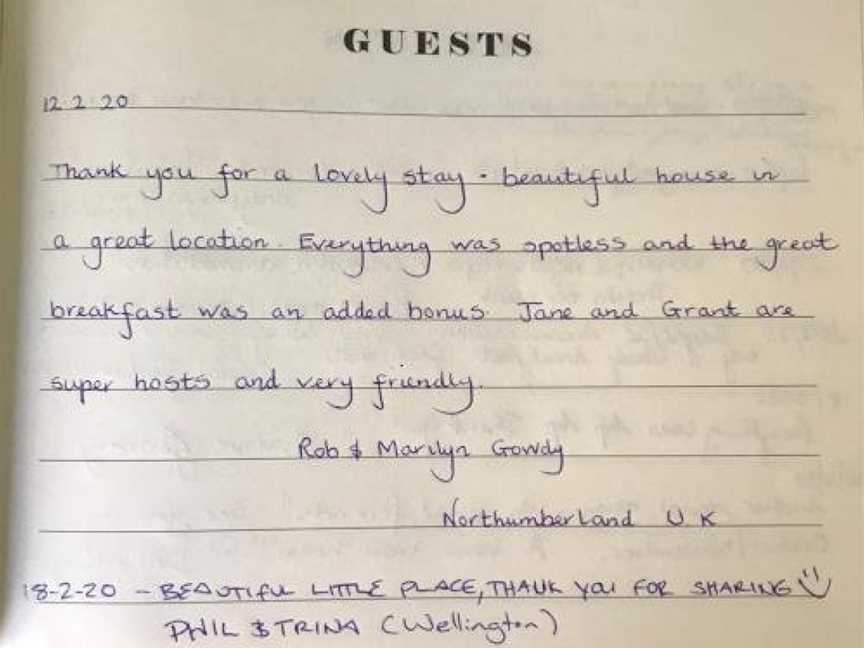 GUESTS
12.2.20
Thank you for a lovely stay. beautiful house in
a great location. Everything was spotless and the great
breakfast was an added bonus. Jane and Grant are
super hosts and very friendly.
Rob & Marilyn Gowdy
Northumberland U.K
18-2-20 - BEAUTIFUL LITTLE PLACE, THANK YOU FOR SHARING
PHIL & TRINA (Wellington)